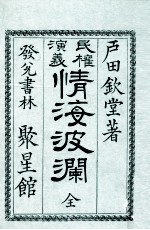 戸田欽堂著
民權演義
情海波瀾
全
發兌書林
聚星館